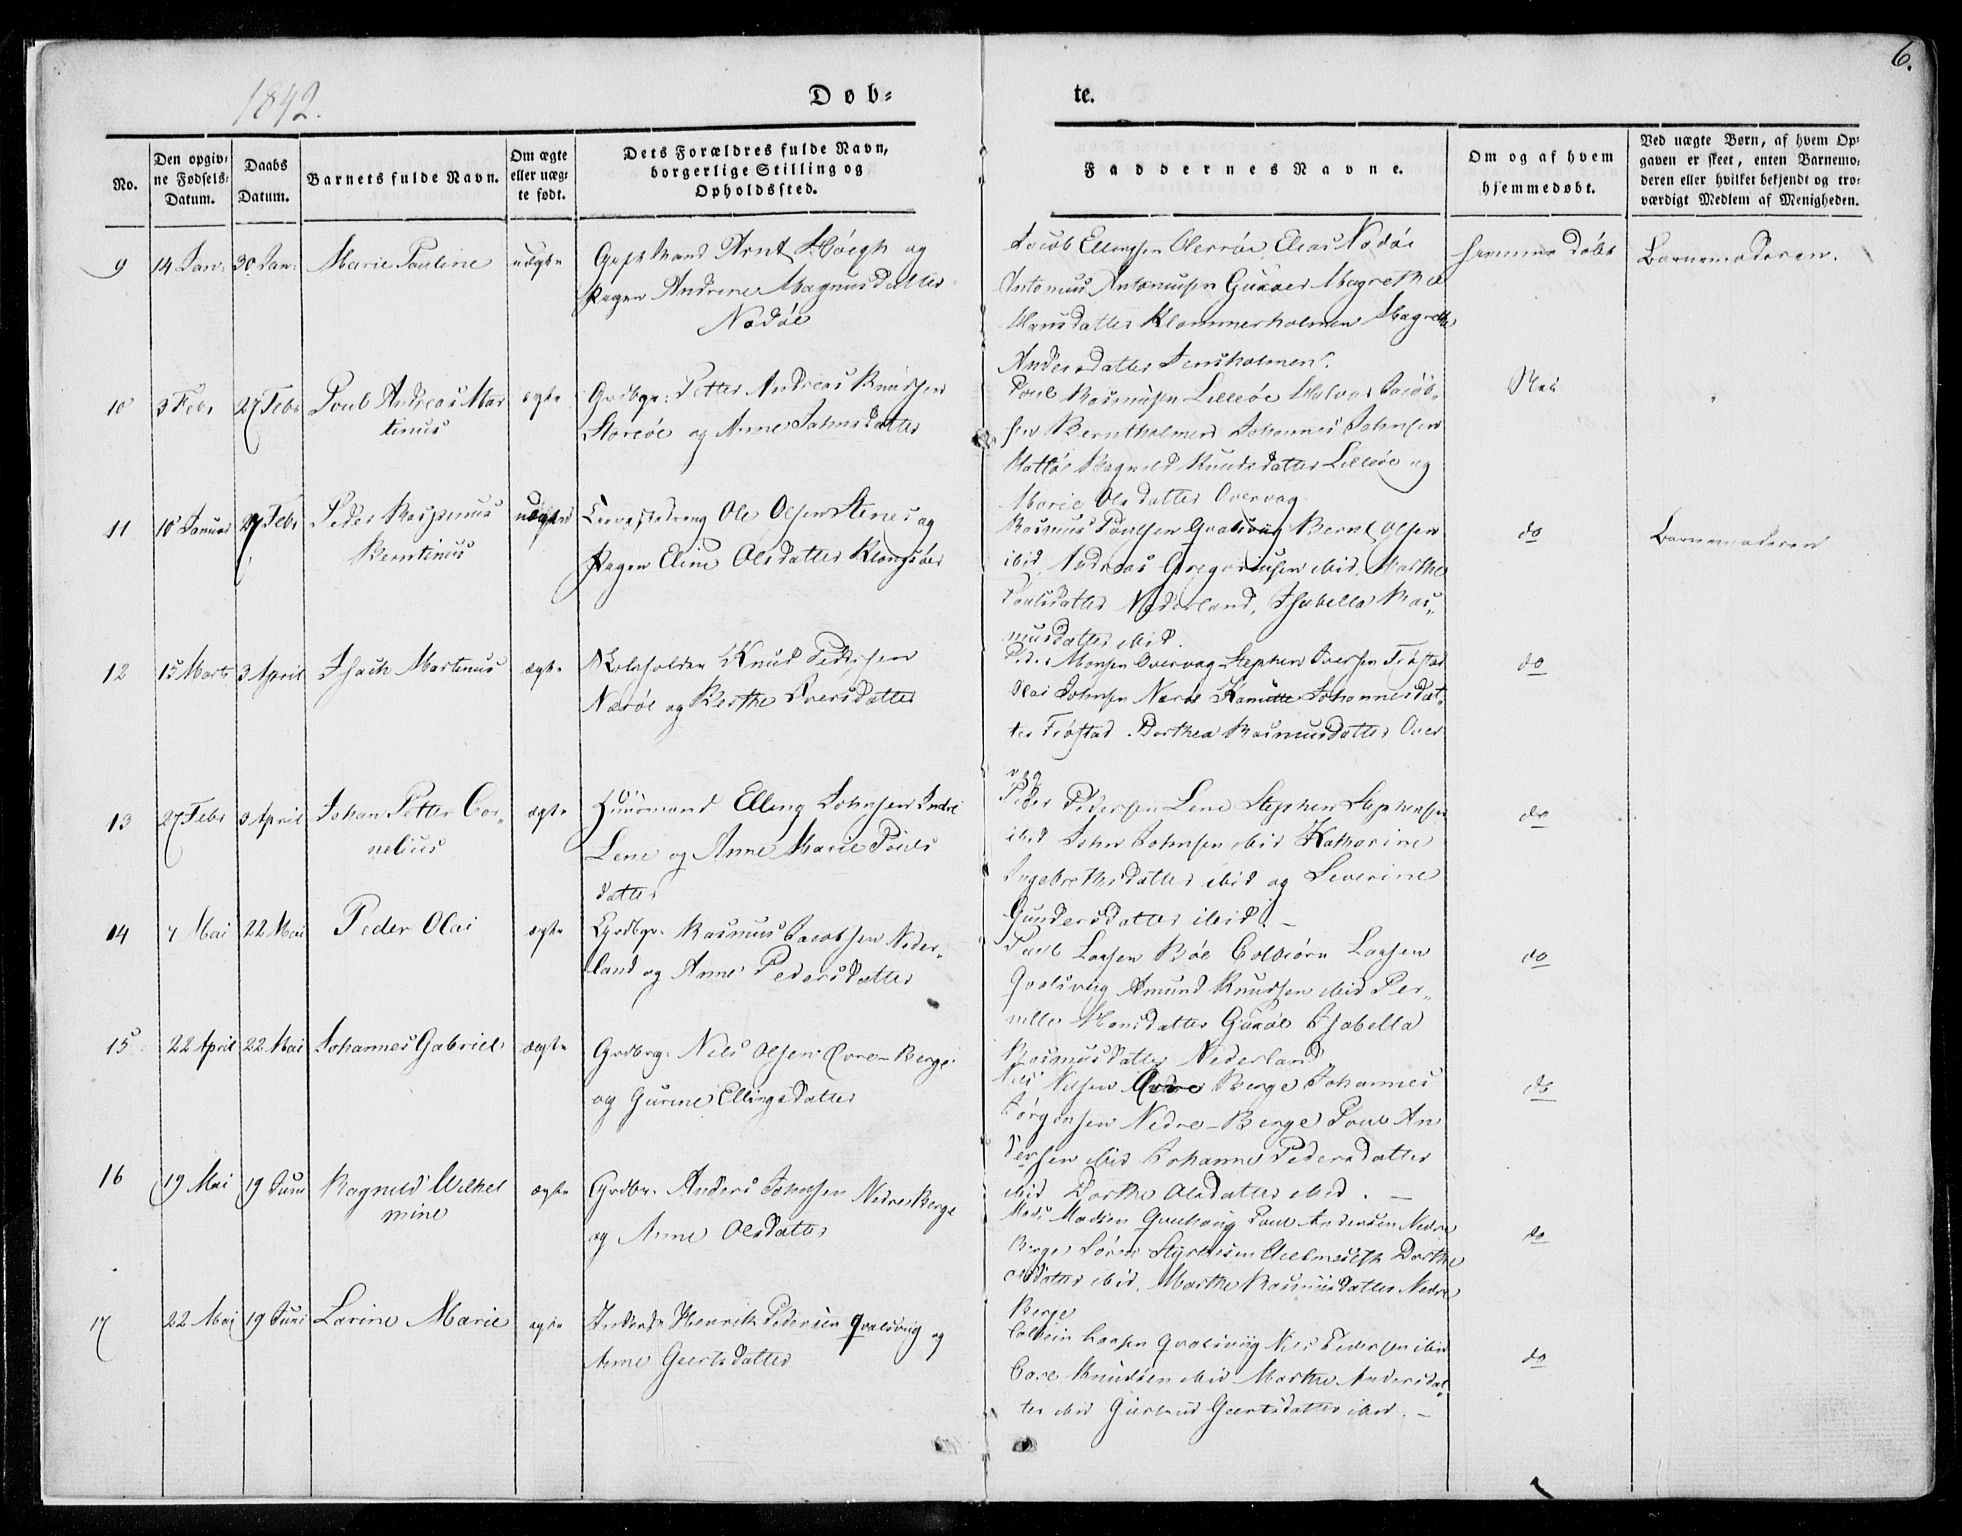 6.
1842.
Døb-
te.
No.
Den opgiv-
ne Fødsels-
Datum.
Daabs
Datum.
Barnets fulde Navn.
Om ægte
eller uæg-
te født.
Dets Forældres fulde Navn,
borgerlige Stilling og
Opholdssted.
Faddernes Navne.
Om og af hvem
hjemmedøbt.
Ved uægte Børn, af hvem Op-
gaven er skeet, enten Barnemo-
deren eller hvilket bekjendt og tro-
værdigt Medlem af Menigheden.
9
14 Jan:
30 Jan:
Marie Pauline
uægte
Mand Arnt Høegh og
Pigen Andrine Magnusdatter
Nadøe
Jacob Ellingsen Elias Nadøe
Antonius Antoniusen Magrethe
Hansdatter Klammerholmen Magrethe
Andersdatter Jensholmen.
hjemme døbt
Barnemoderen.
10
3 Feb
27 Feb
Poul Andreas Mar
tinus
ægte
Grdbgr: Petter Andreas Knudsen
Storøe og Anne Johnsdatter
Poul Rasmusen Lilleøe Halvor Jacob-
sen Berntholmen Johannes Johnsen
Ragnild Knudsdatter Lilleøe og
Marie Olsdatter Overvag
Nei
11
10 Januar
27 Febr
Peder Rasmus
Berntinus
uægte
Ole Olsen Stenes og
Pigen Eline Olsdatter
Rasmus Poulsen Qvalsvig Bernt Olsen
ibid, Andreas Gregoriusen ibid, Marthe
Poulsdatter Nederland, Isabella Ras-
musdatter ibid.
do
Barnemoderen
12
15 Marts
3 April
Isach Martinus
ægte
Knud Pedersen
Nærøe og Berthe Iversdatter
Peder Monsen Overvag Stephen Iversen Frøstad
Olai Johnsen Nærøe Johannesdat-
ter Frøstad Dorthea Rasmusdatter Over
vag
do
13
27 Febr
3 April
Johan Petter Cor-
nelius
ægte
Huusmand Elling Johnsen Indre
Lene og Anne Marie Pouls
datter
Peder Pedersen Lene Stephen Stephensen
ibid John Johnsen ibid Katharine
Ingebrethsdatter ibid og Severine
Gundersdatter ibid. -
do
14
7 Mai
22 Mai
Peder Olai
ægte
Grdbgr. Rasmus Jacobsen Neder-
land og Anne Pedersdatter
Poul Larsen Bøe Colbiørn Larsen
Qvalsvig Amund Knudsen ibid Per-
nille Hansdatter Isabella
Rasmusdatter Nederland
do
15
22 April
22 Mai
Johannes Gabriel
ægte
Grdbrg. Nils Olsen Øvre-Berge
og Gurine Ellingsdatter
Nils Nilsen Øvre Berge Johannes
Jørgensen Nedre-Berge Poul An
dersen ibid Johanne Pedersdatter
ibid Dorthe Olsdatter ibid. -
do
16
19 Mai
19 Juni
Ragnild Wilhel
mine
ægte
Grdbr. Anders Johnsen Nedre Berge
og Anne Olsdatter
Mads Madsen Poul Andersen Nedre
Berge Søren Dorthe
Olsdatter ibid. Marthe Rasmusdatter Nedre
Berge
do
17
22 Mai
19 Juni
Larine Marie
ægte
Henrik Pedersen Qvalsviig og
Anne Geertsdatter
Larsen Qvalsviig Nils Pedersen ibid
Knudsen ibid Marthe Andersdat-
ter ibid Geertsdatter ibid. -
do